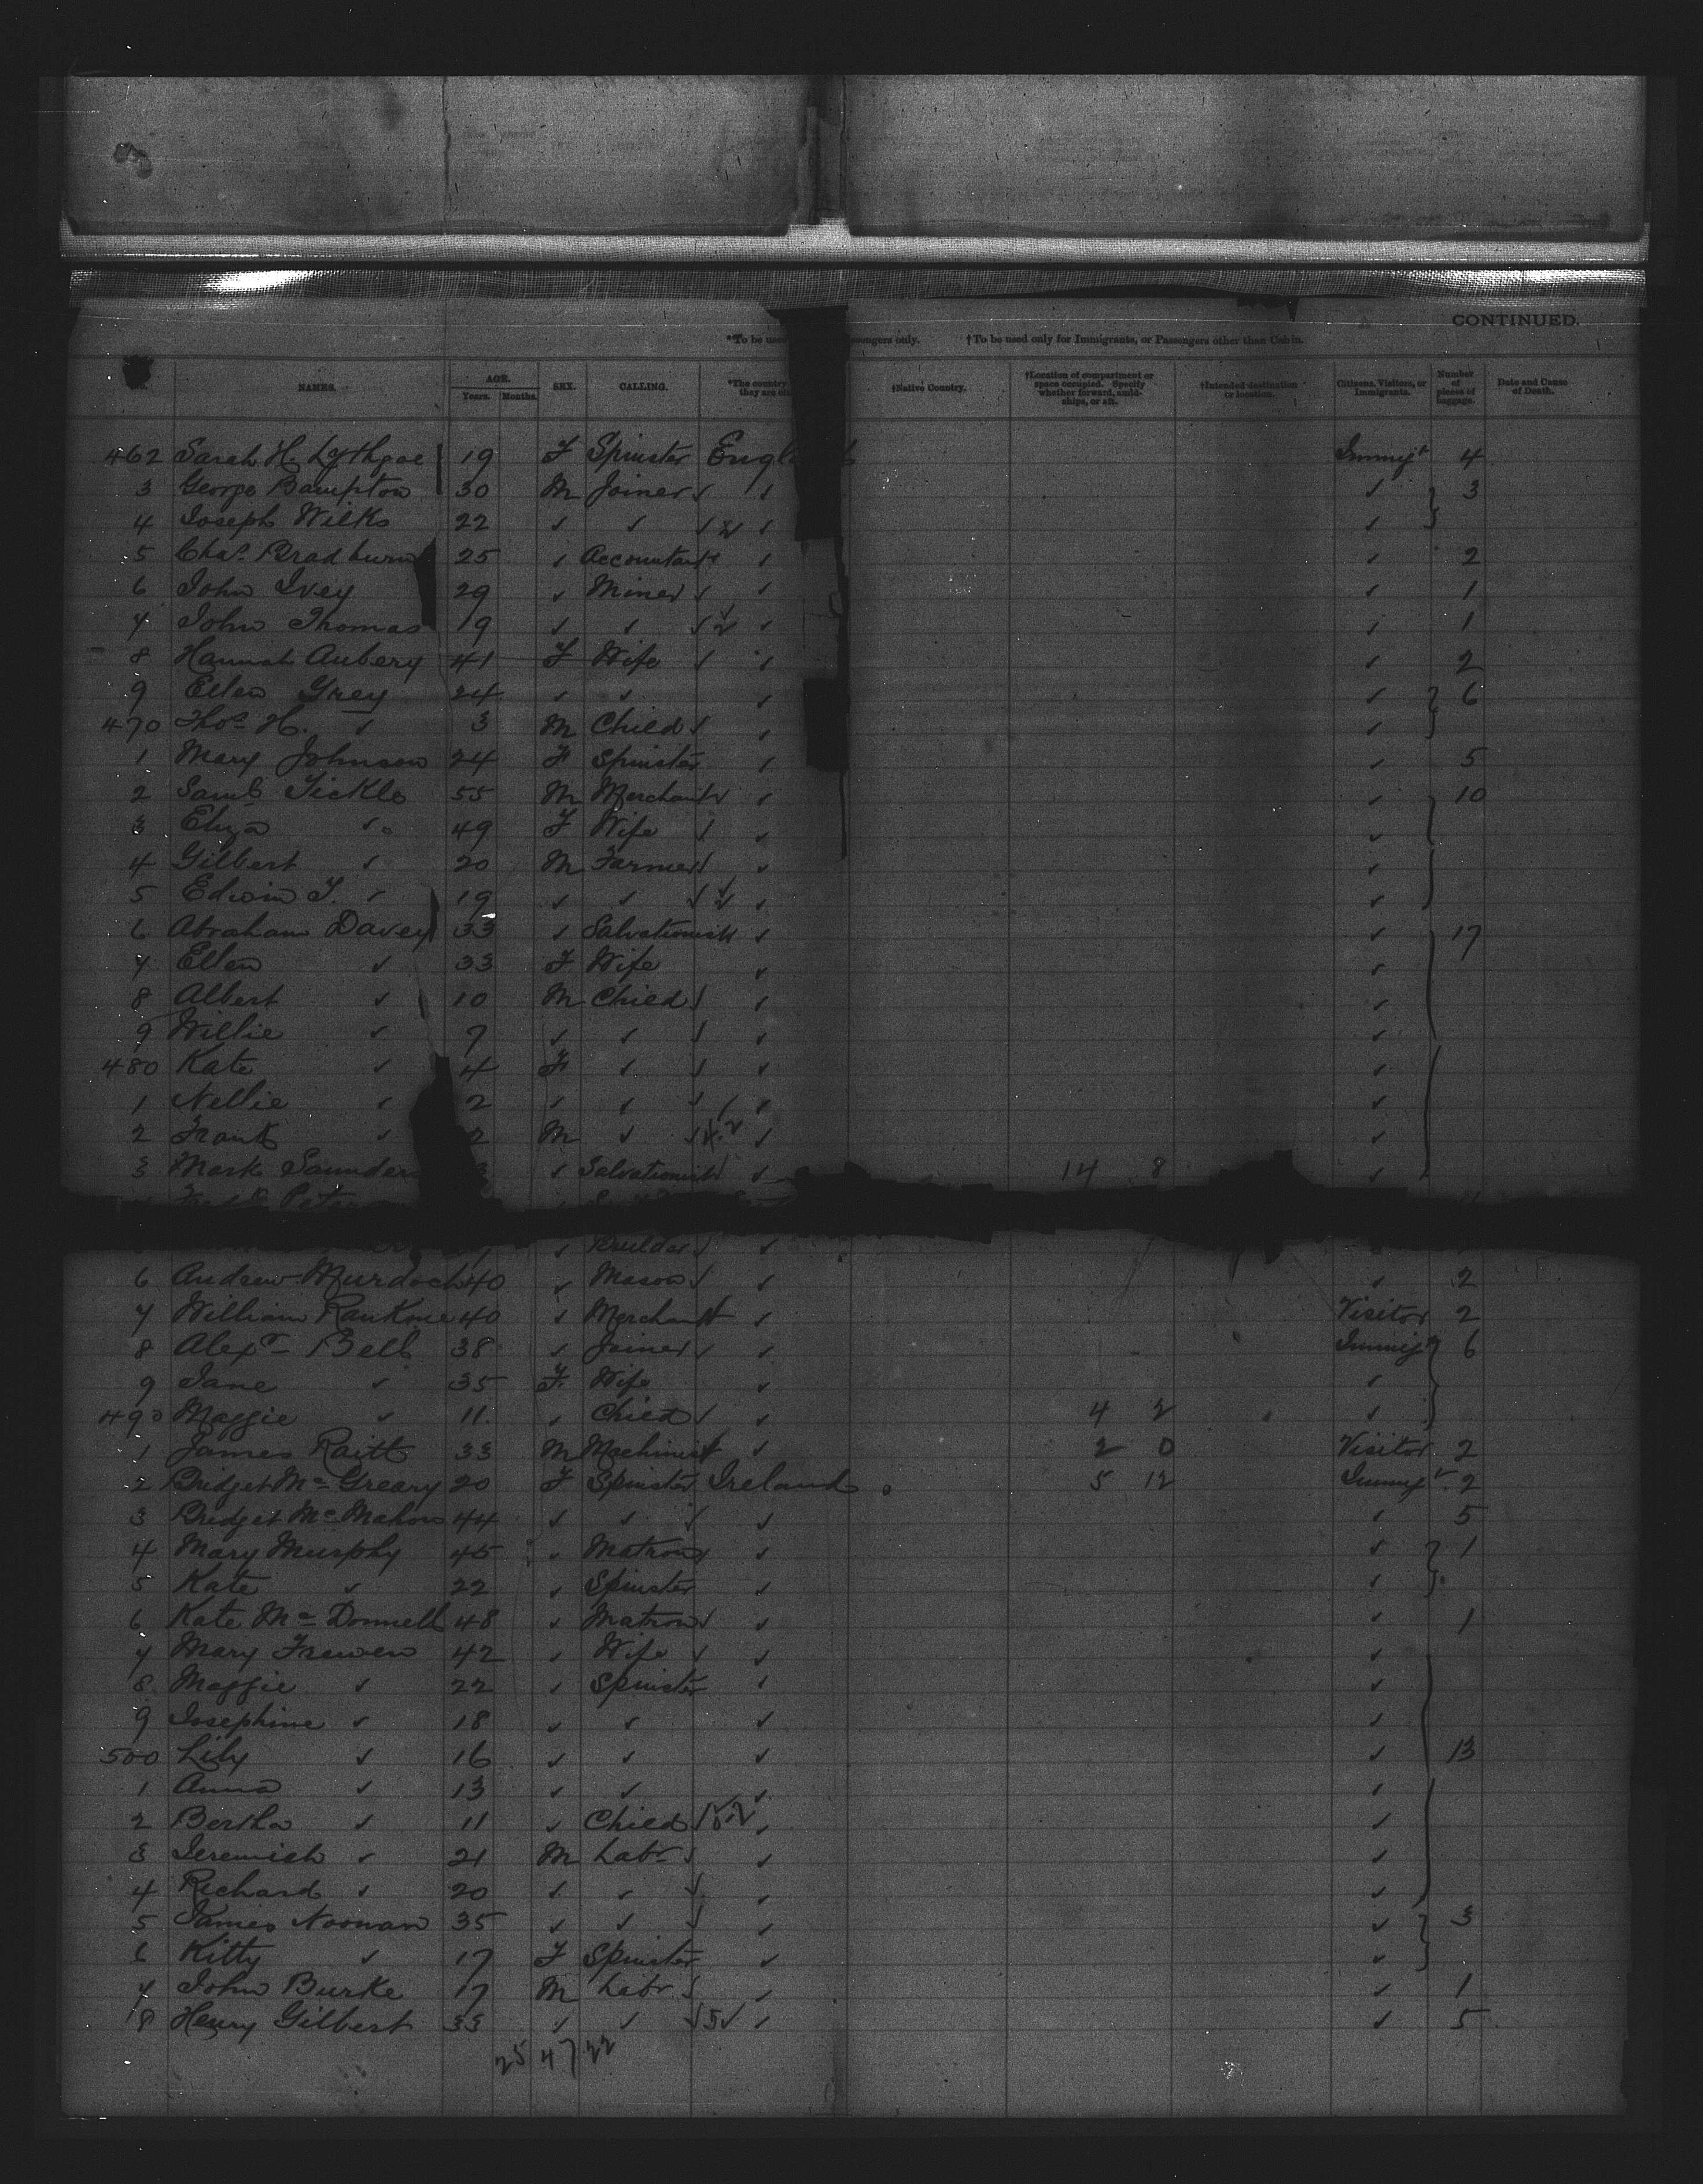 CONTINUED.
*To be use ssengers only. †To be used only for Immigrants, or Passengers other than Cabin.
NAMES. AGE. Years. Months. SEX. CALLING. *The country they are †Native Country. †Location of compartment or space occupied. Specify whether forward, amidships, or aft. †Intended destination or location. Citizens, Visitors, or Immigrants. Number of pieces of baggage. Date and Cause of Death.
462 Sarah H. Lythgoe 19 F Spinster Engl Immigt 4
3 George Bampton 30 M Joiner ✓ ✓ ✓ 3
4 Joseph Wilks 22 ✓ ✓ ✓ ✓ ✓
5 Chas. Bradburn 25 ✓ Accountant ✓ ✓ 2
6 John Ivey 29 ✓ Miner ✓ ✓ ✓ 1
7 John Thomas 19 ✓ ✓ ✓ ✓ ✓ 1
8 Hannah Aubery 41 F Wife ✓ ✓ ✓ 2
9 Ellen Grey 24 ✓ ✓ ✓ ✓ 6
470 Thos. H. ✓ 3 M Child ✓ ✓ ✓
1 Mary Johnson 24 F Spinster ✓ ✓ 5
2 Saml. Tickle 55 M Merchant ✓ ✓ 10
3 Eliza ✓ 49 F Wife ✓ ✓ ✓
4 Gilbert ✓ 20 M Farmer ✓ ✓ ✓
5 Edwin T. ✓ 19 ✓ ✓ ✓ ✓ ✓
6 Abraham Davey 33 ✓ Salvationist ✓ ✓ 17
7 Ellen ✓ 33 F Wife ✓ ✓
8 Albert ✓ 10 M Child ✓ ✓ ✓
9 Willie ✓ 7 ✓ ✓ ✓ ✓ ✓
480 Kate ✓ 4 F ✓ ✓ ✓ ✓
1 Nellie ✓ 2 ✓ ✓ ✓ ✓ ✓
2 Frank ✓ 2 M ✓ ✓ ✓ ✓
3 Mark Saunders ✓ Salvationist ✓ 14 8 ✓
Peter
✓ Builder ✓ ✓
6 Andrew Murdoch 40 ✓ Mason ✓ ✓ ✓ 2
7 William 40 ✓ Merchant ✓ Visitor 2
8 Alexr. Bell 38 ✓ Joiner ✓ ✓ Immigt 6
9 Jane ✓ 35 F Wife ✓ ✓
490 Maggie ✓ 11 ✓ Child ✓ ✓ 4 2 ✓
1 James Raitt 33 M Machinist ✓ 2 0 Visitor 2
2 Bridget McGreary 20 F Spinster Ireland 5 12 Immigt. 2
3 Bridget McMahon 44 ✓ ✓ ✓ ✓ ✓ 5
4 Mary Murphy 45 ✓ Matron ✓ ✓ ✓ 1
5 Kate ✓ 22 ✓ Spinster ✓ ✓
6 Kate McDonnell 48 ✓ Matron ✓ ✓ ✓ 1
7 Mary Frewen 42 ✓ Wife ✓ ✓ ✓
8 Maggie ✓ 22 ✓ Spinster ✓ ✓
9 Josephine ✓ 18 ✓ ✓ ✓ ✓
500 Lily ✓ 16 ✓ ✓ ✓ ✓ 13
1 Anna ✓ 13 ✓ ✓ ✓ ✓
2 Bertha ✓ 11 ✓ Child ✓ ✓ ✓
3 Jeremiah ✓ 21 M Labr ✓ ✓ ✓
4 Richard ✓ 20 ✓ ✓ ✓ ✓ ✓
5 James Noonan 35 ✓ ✓ ✓ ✓ ✓ 3
6 Kitty ✓ 17 F Spinster ✓ ✓
7 John Burke 17 M Labr ✓ ✓ ✓ 1
8 Henry Gilbert 33 ✓ ✓ ✓ 5 ✓ ✓ ✓ 5
25 47 22